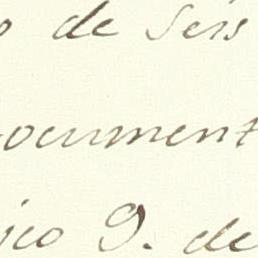 o de seis
ocument
ico 9. de